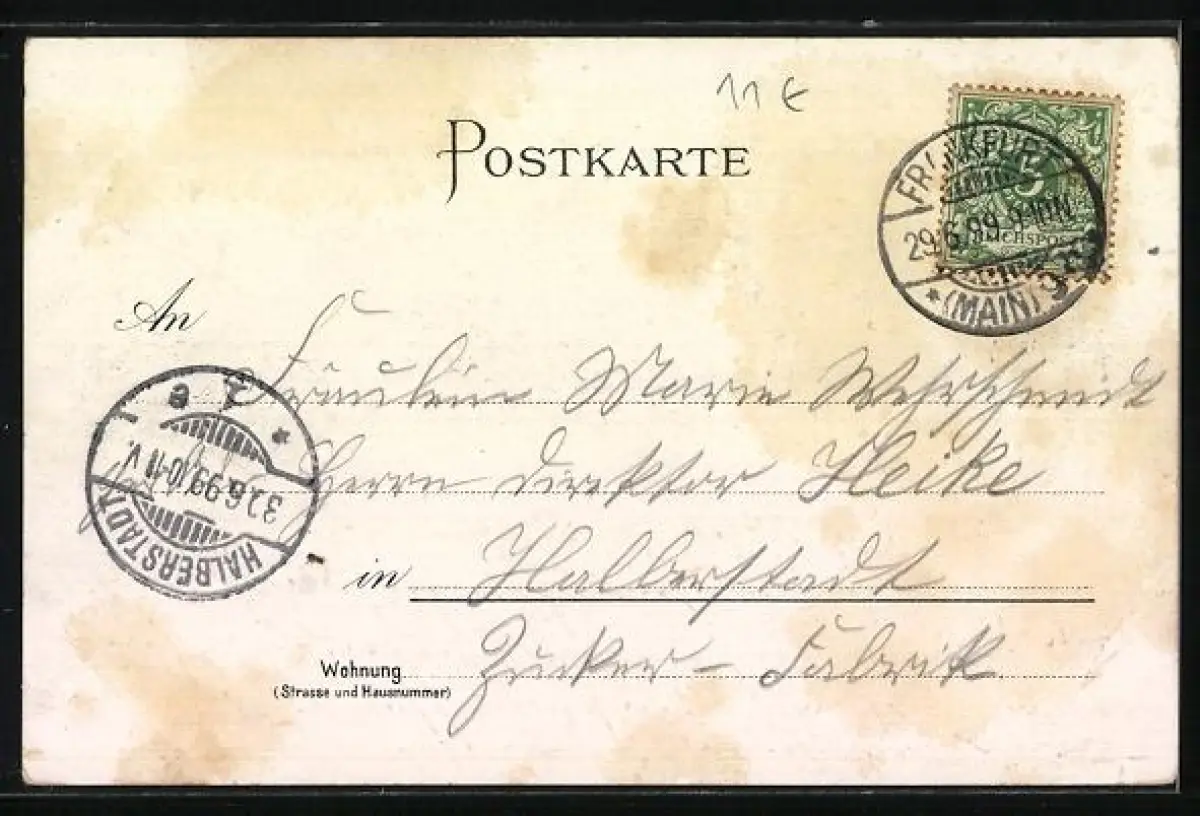 11 €
POSTKARTE
FRANKFURT
29.6.99.9-10N.
* (MAIN) 9
5
REICHSPOST
An Fräulein Marie Wehrschmidt
Herrn Direktor Heike
in Halberstadt
Zucker-Fabrik
Wohnung
(Strasse und Hausnummer)
HALBERSTADT
30.6.99.10-11V.
* 1 e